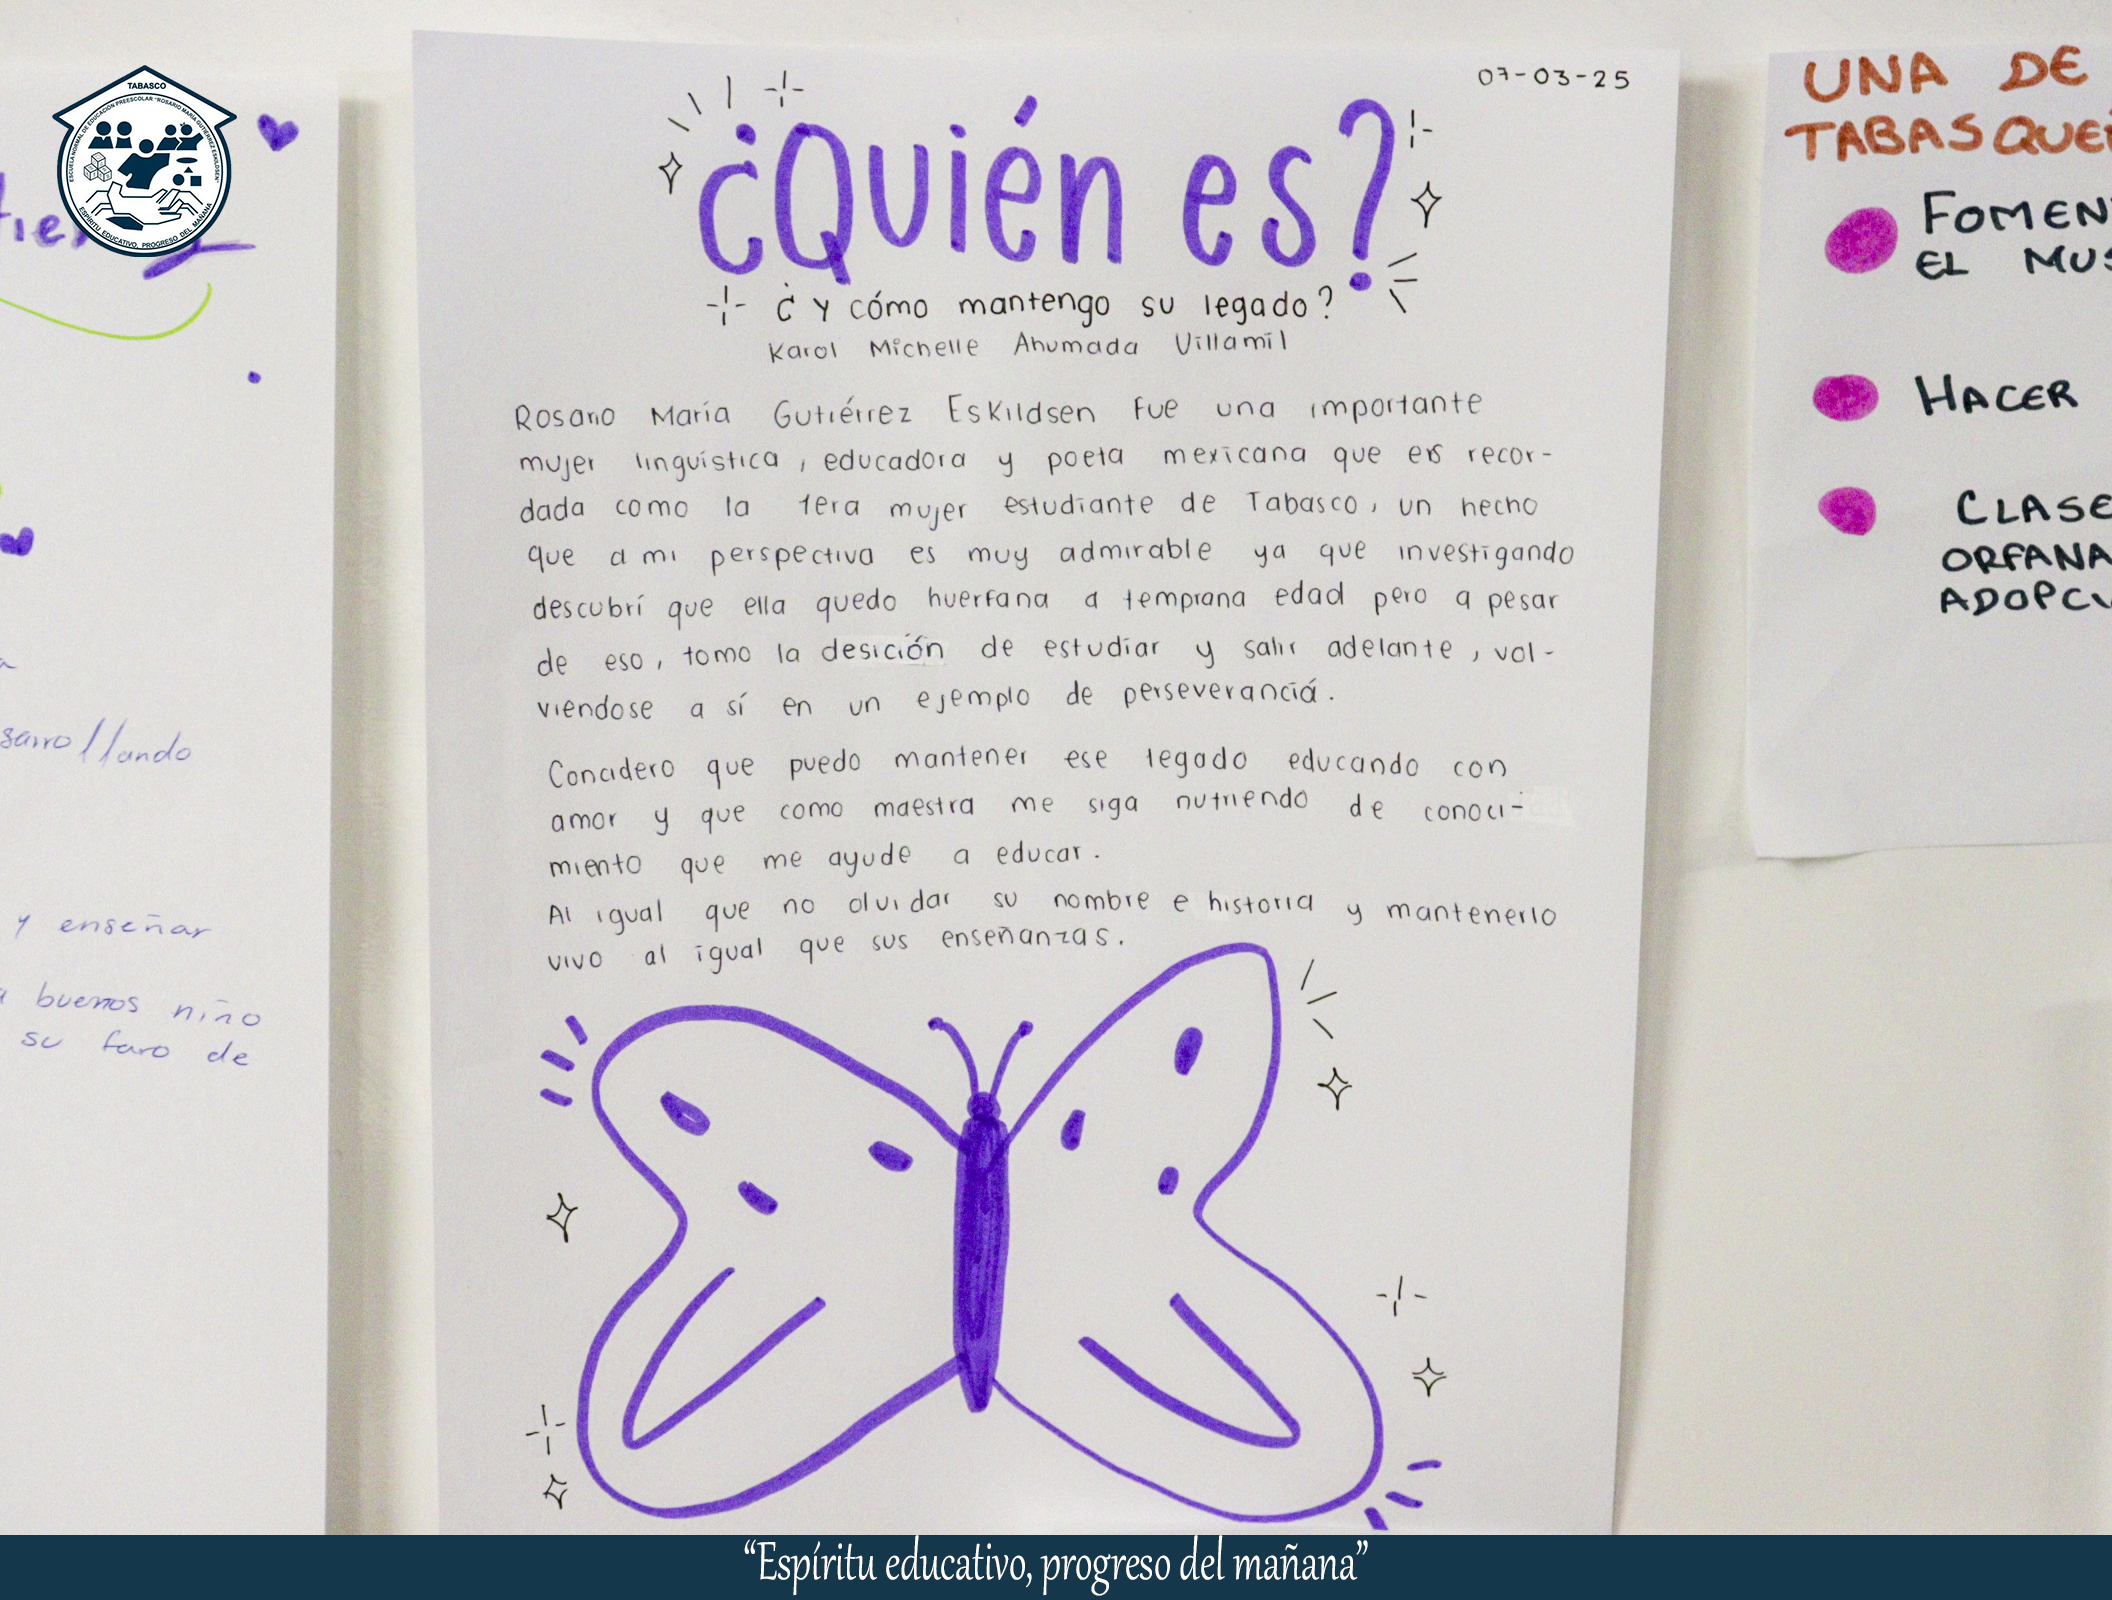 TABASCO
ESCUELA NORMAL DE EDUCACIÓN PREESCOLAR "ROSARIO MARÍA GUTIÉRREZ ESKILDSEN"
ESPÍRITU EDUCATIVO, PROGRESO DEL MAÑANA
sarrollando
y enseñar
buenos niño
su faro de
07-03-25
¿Quién es?
¿Y cómo mantengo su legado?
Karol Michelle Ahumada Villamil
Rosario María Gutiérrez Eskildsen fue una importante
mujer linguística, educadora y poeta mexicana que es recor-
dada como la 1era mujer estudiante de Tabasco, un hecho
que a mi perspectiva es muy admirable ya que investigando
descubrí que ella quedo huerfana a temprana edad pero a pesar
de eso, tomo la desición de estudiar y salir adelante, vol-
viendose a sí en un ejemplo de perseveranciá.
Concidero que puedo mantener ese legado educando con
amor y que como maestra me siga nutriendo de conoci-
miento que me ayude a educar.
Al igual que no olvidar su nombre e historia y mantenerlo
vivo al igual que sus enseñanzas.
UNA DE
TABASQUE
FOMEN
EL MUS
HACER
CLASE
ORFANA
ADOPCI
“Espíritu educativo, progreso del mañana”